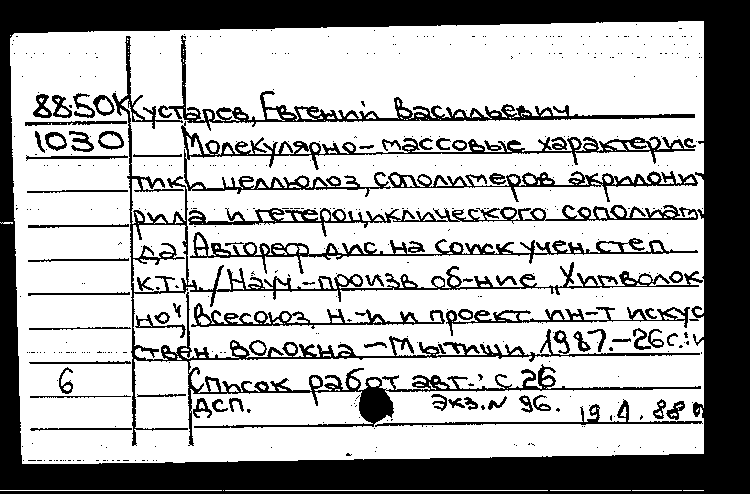 88.50К Кустарев, Евгений Васильевич.
1030 Молекулярно-массовые характерис-
тики целлюлоз, сополимеров акрилонит
рила и гетероциклического сополиами
да: Автореф дис. на соиск учен. степ.
к.т.н. / Науч.-произв об-ние „Химволок-
но", Всесоюз н.-и и проект ин-т искус
ствен. волокна - Мытищи, 1987.-26с.:и
6 Список работ авт.: с.26.
дсп. экз.N 96. 19.4.88